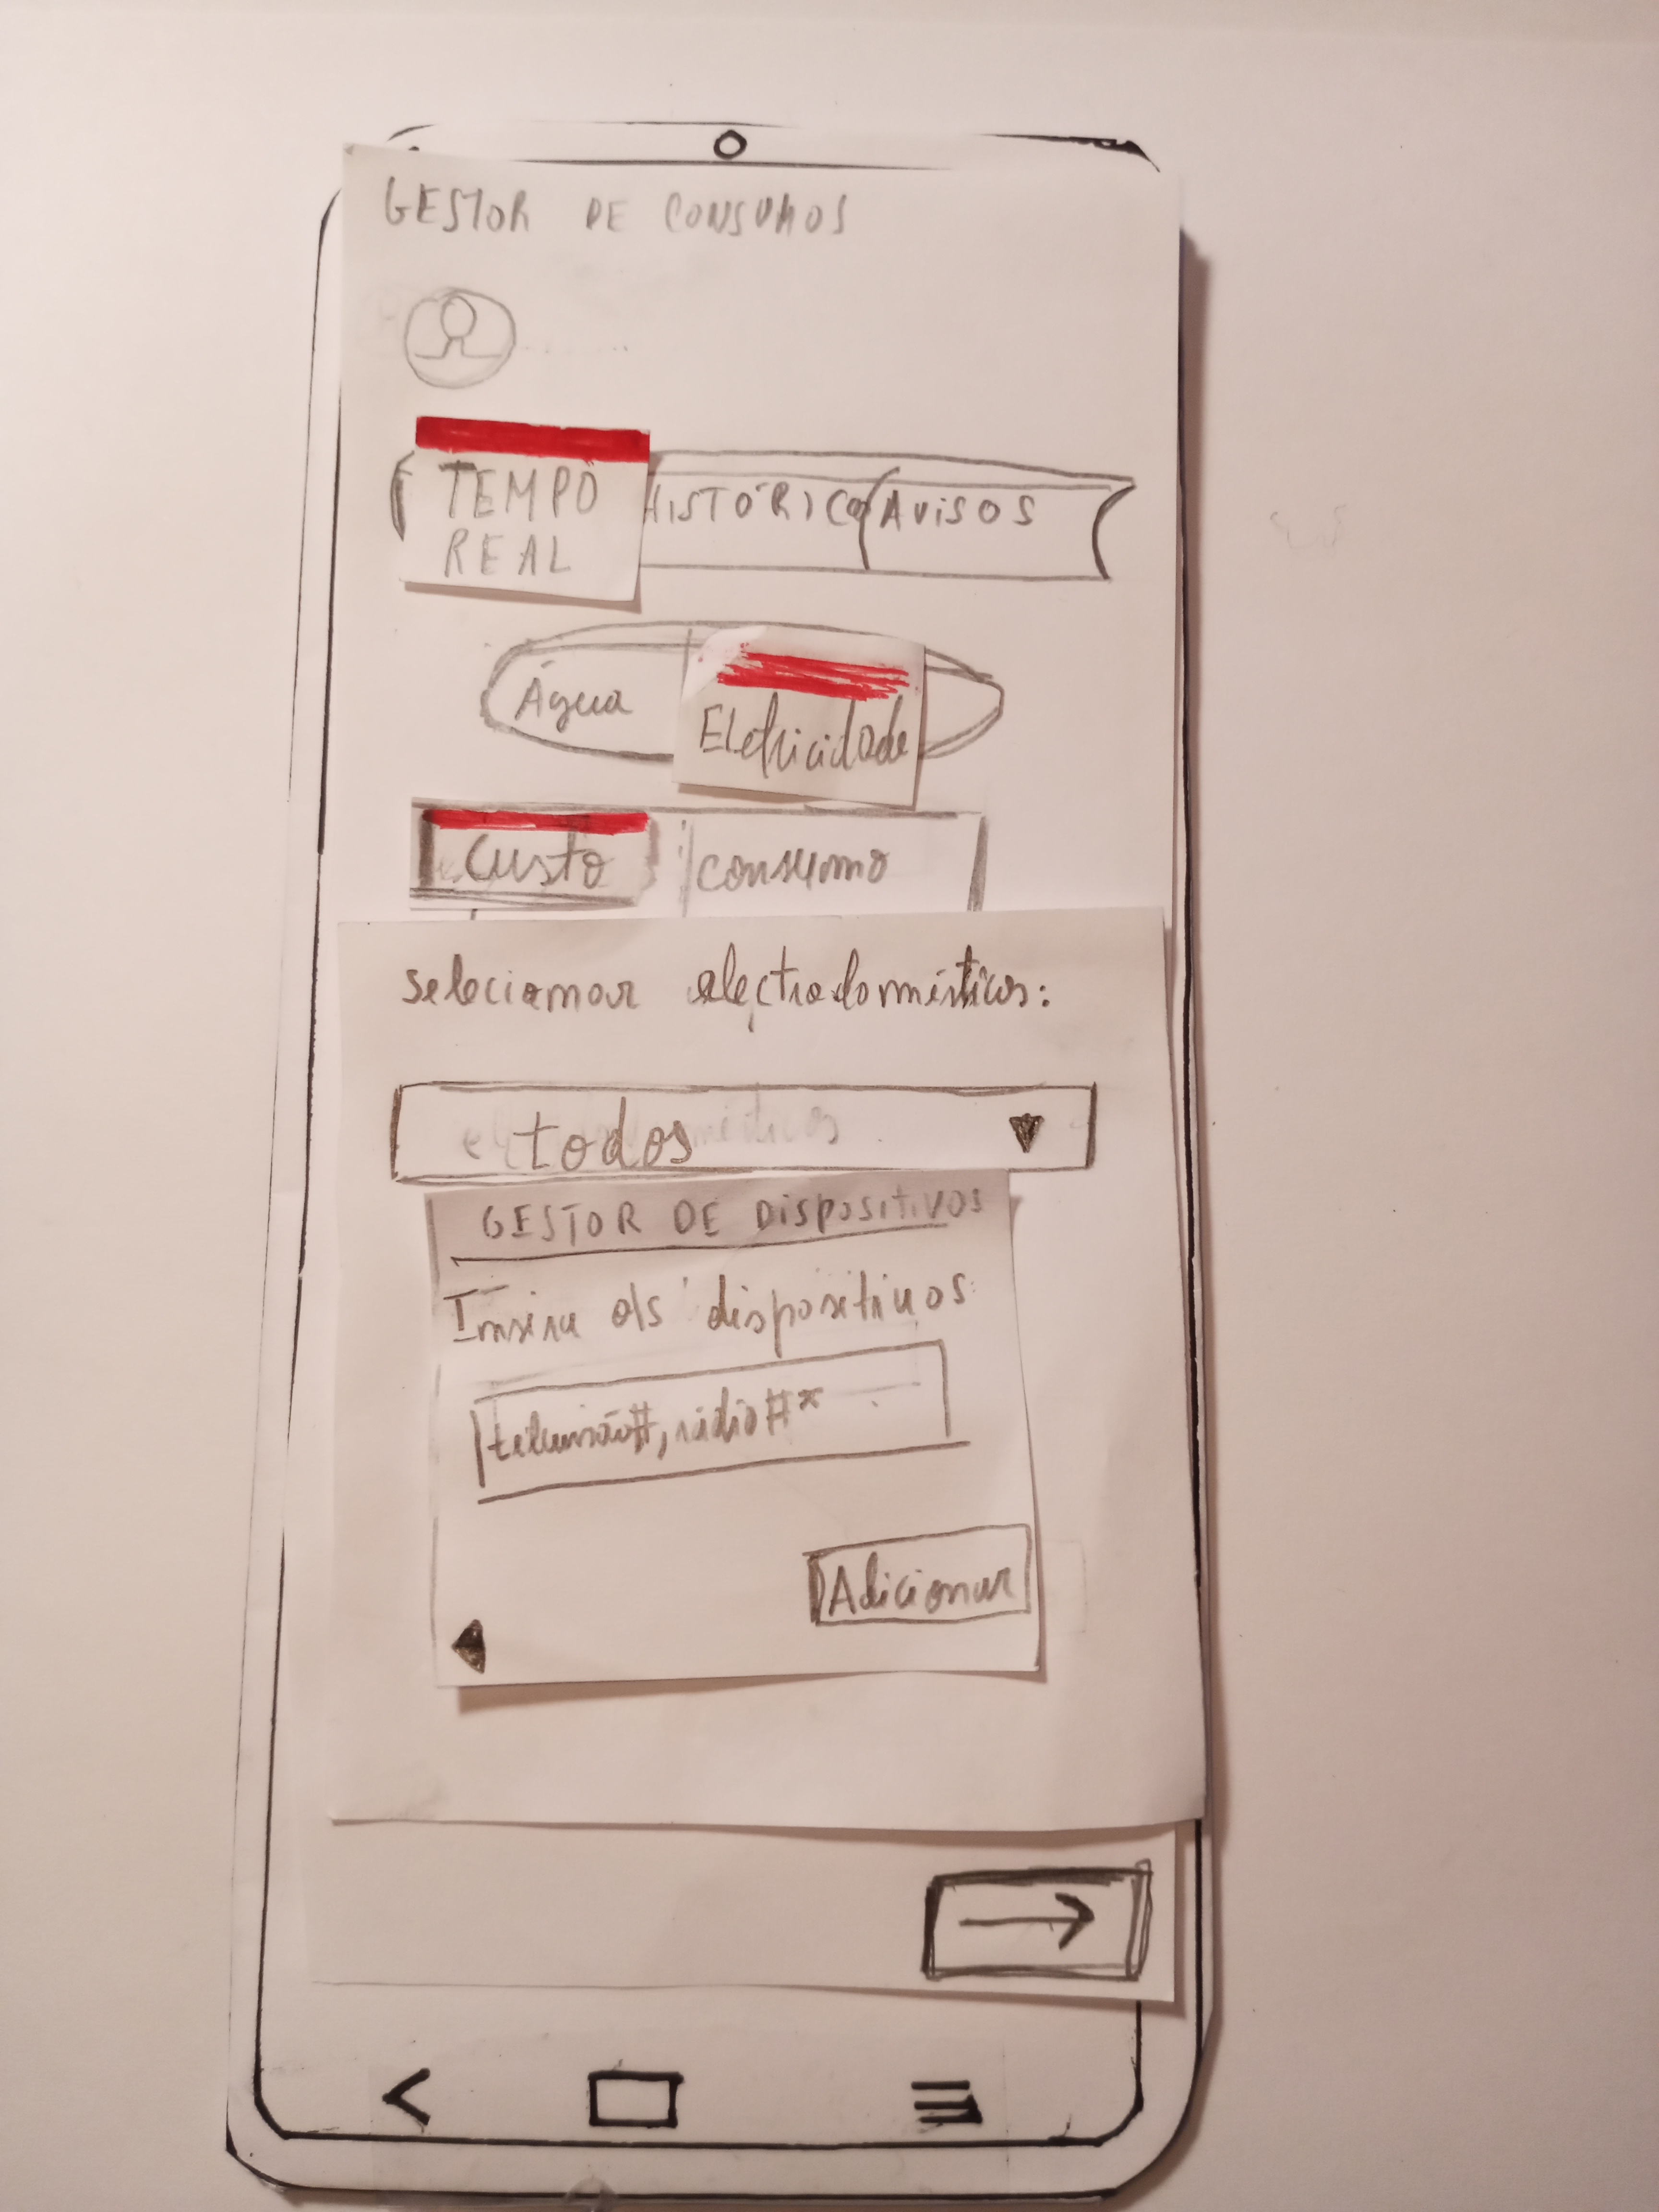 GESTOR DE CONSUMOS
TEMPO
REAL
HISTÓRICO
AVISOS
Água
Eletricidade
Custo
consumo
selecionar electrodomésticos:
todos
GESTOR DE DISPOSITIVOS
Insira os dispositivos:
televisão#, rádio#*
Adicionar